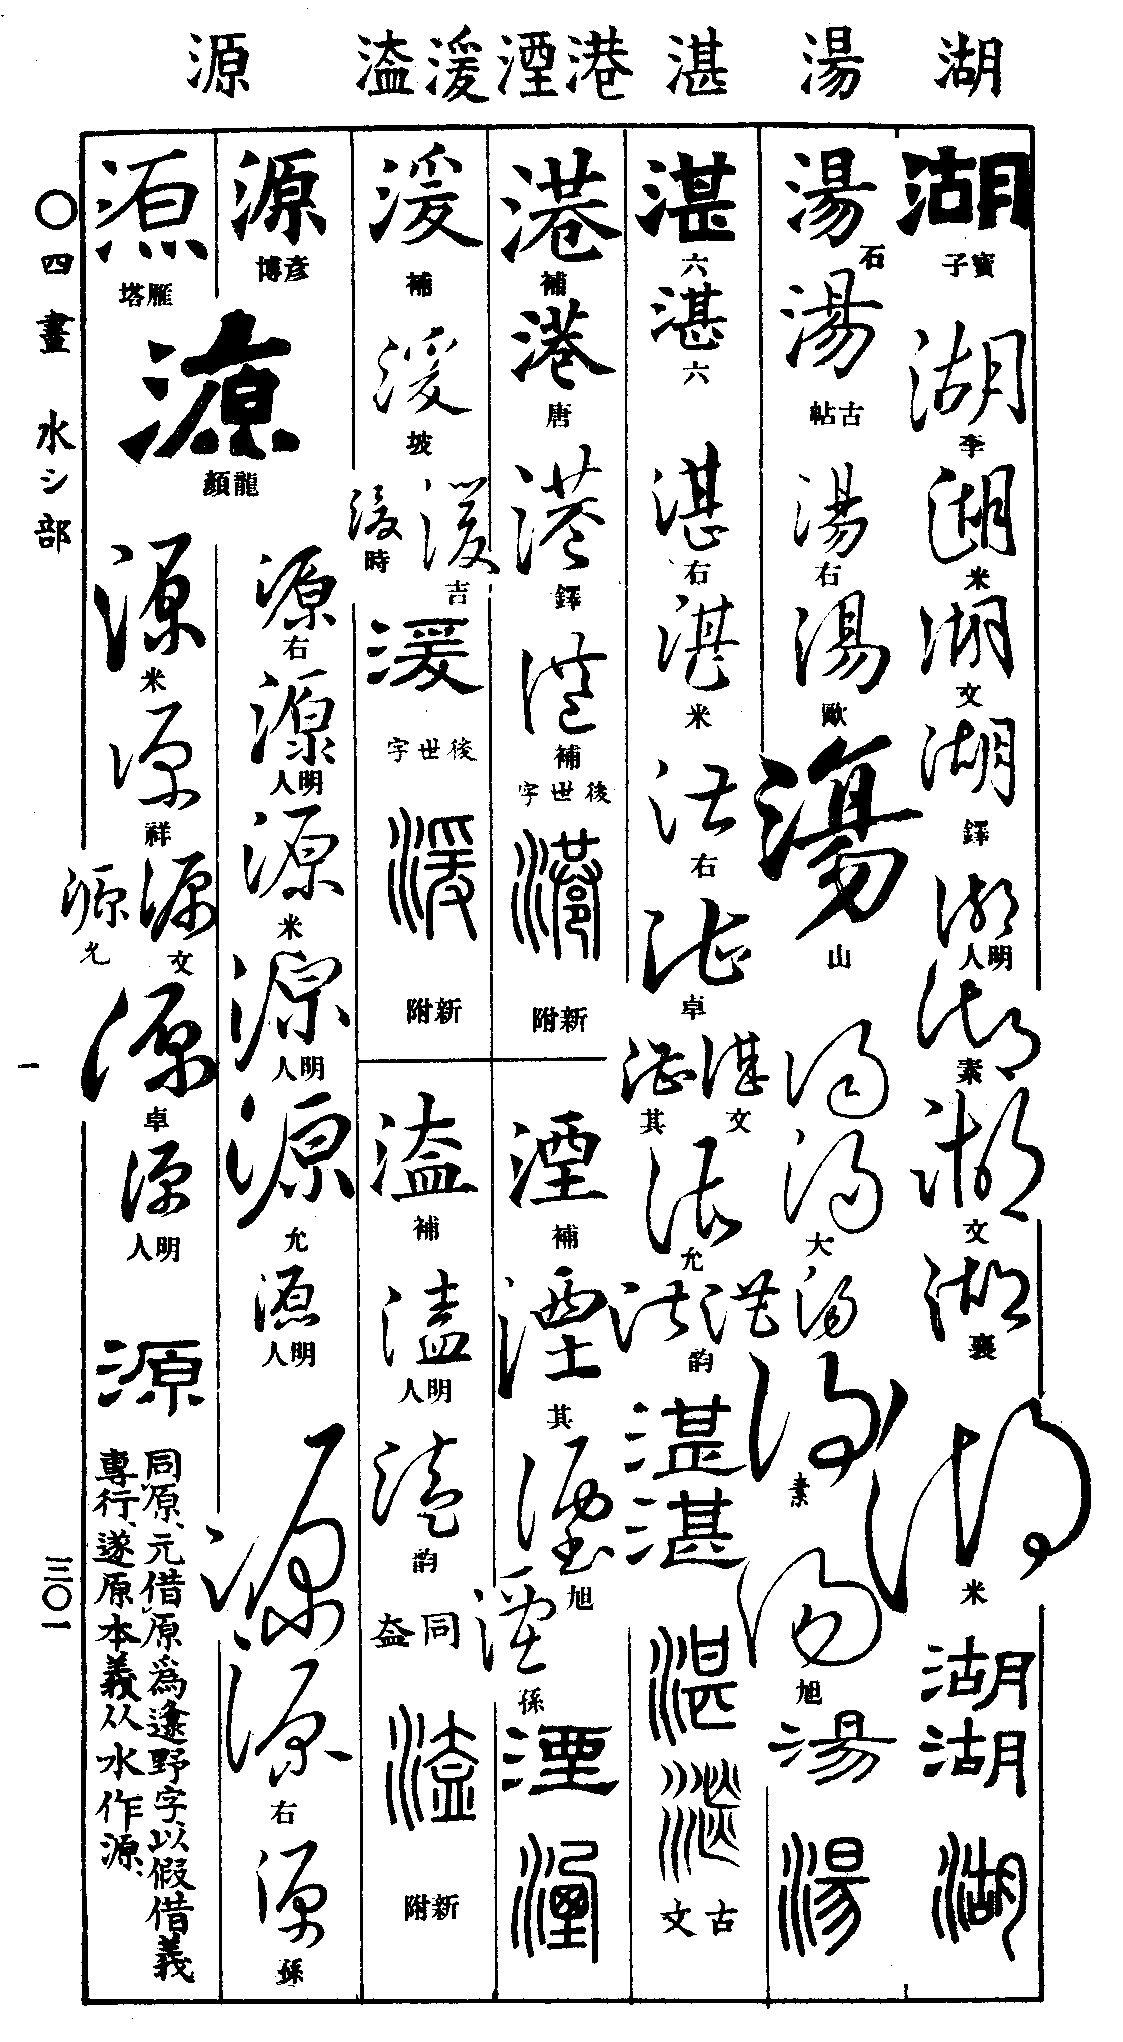 湖 湯 湛 港 湮 湲 溘 源
湖
子寳
湖
李
湖
米
湖
文
湖
鐸
湖
人明
湖
素
湖
文
湖
襄
湖
米
湖
湖
湖
湯
石
湯
帖古
湯
右
湯
歐
湯
山
湯
湯
大
湯
湯
素
湯
旭
湯
湯
湛
六
湛
六
湛
右
湛
米
湛
右
湛
卓
湛
文
湛
其
湛
允
湛
湛
韵
湛
湛
湛
文古
港
補
港
唐
港
鐸
港
補
字世後
港
附新
湮
補
湮
其
湮
旭
湮
孫
湮
湮
湲
補
湲
坡
湲
吉
湲
時
湲
字世後
湲
附新
溘
補
溘
人明
溘
韵
盍同
溘
附新
源
博彦
源
右
源
人明
源
米
源
人明
源
允
源
人明
源
源
右
源
孫
源
塔雁
源
顏龍
源
米
源
祥
源
文
源
允
源
卓
源
人明
源
同原、元借原為邍野字以假借義
專行、遂原本義从水作源、
〇四畫 水氵部
三〇一